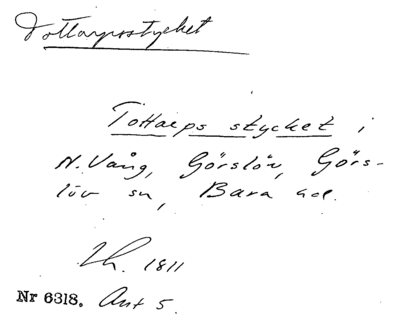 Tottarpsstycket
Tottarps stycket i
N. Vång, Görslöv, Görs-
löv sn, Bara hd.
Lh. 1811
Nr 6318. Akt 5.